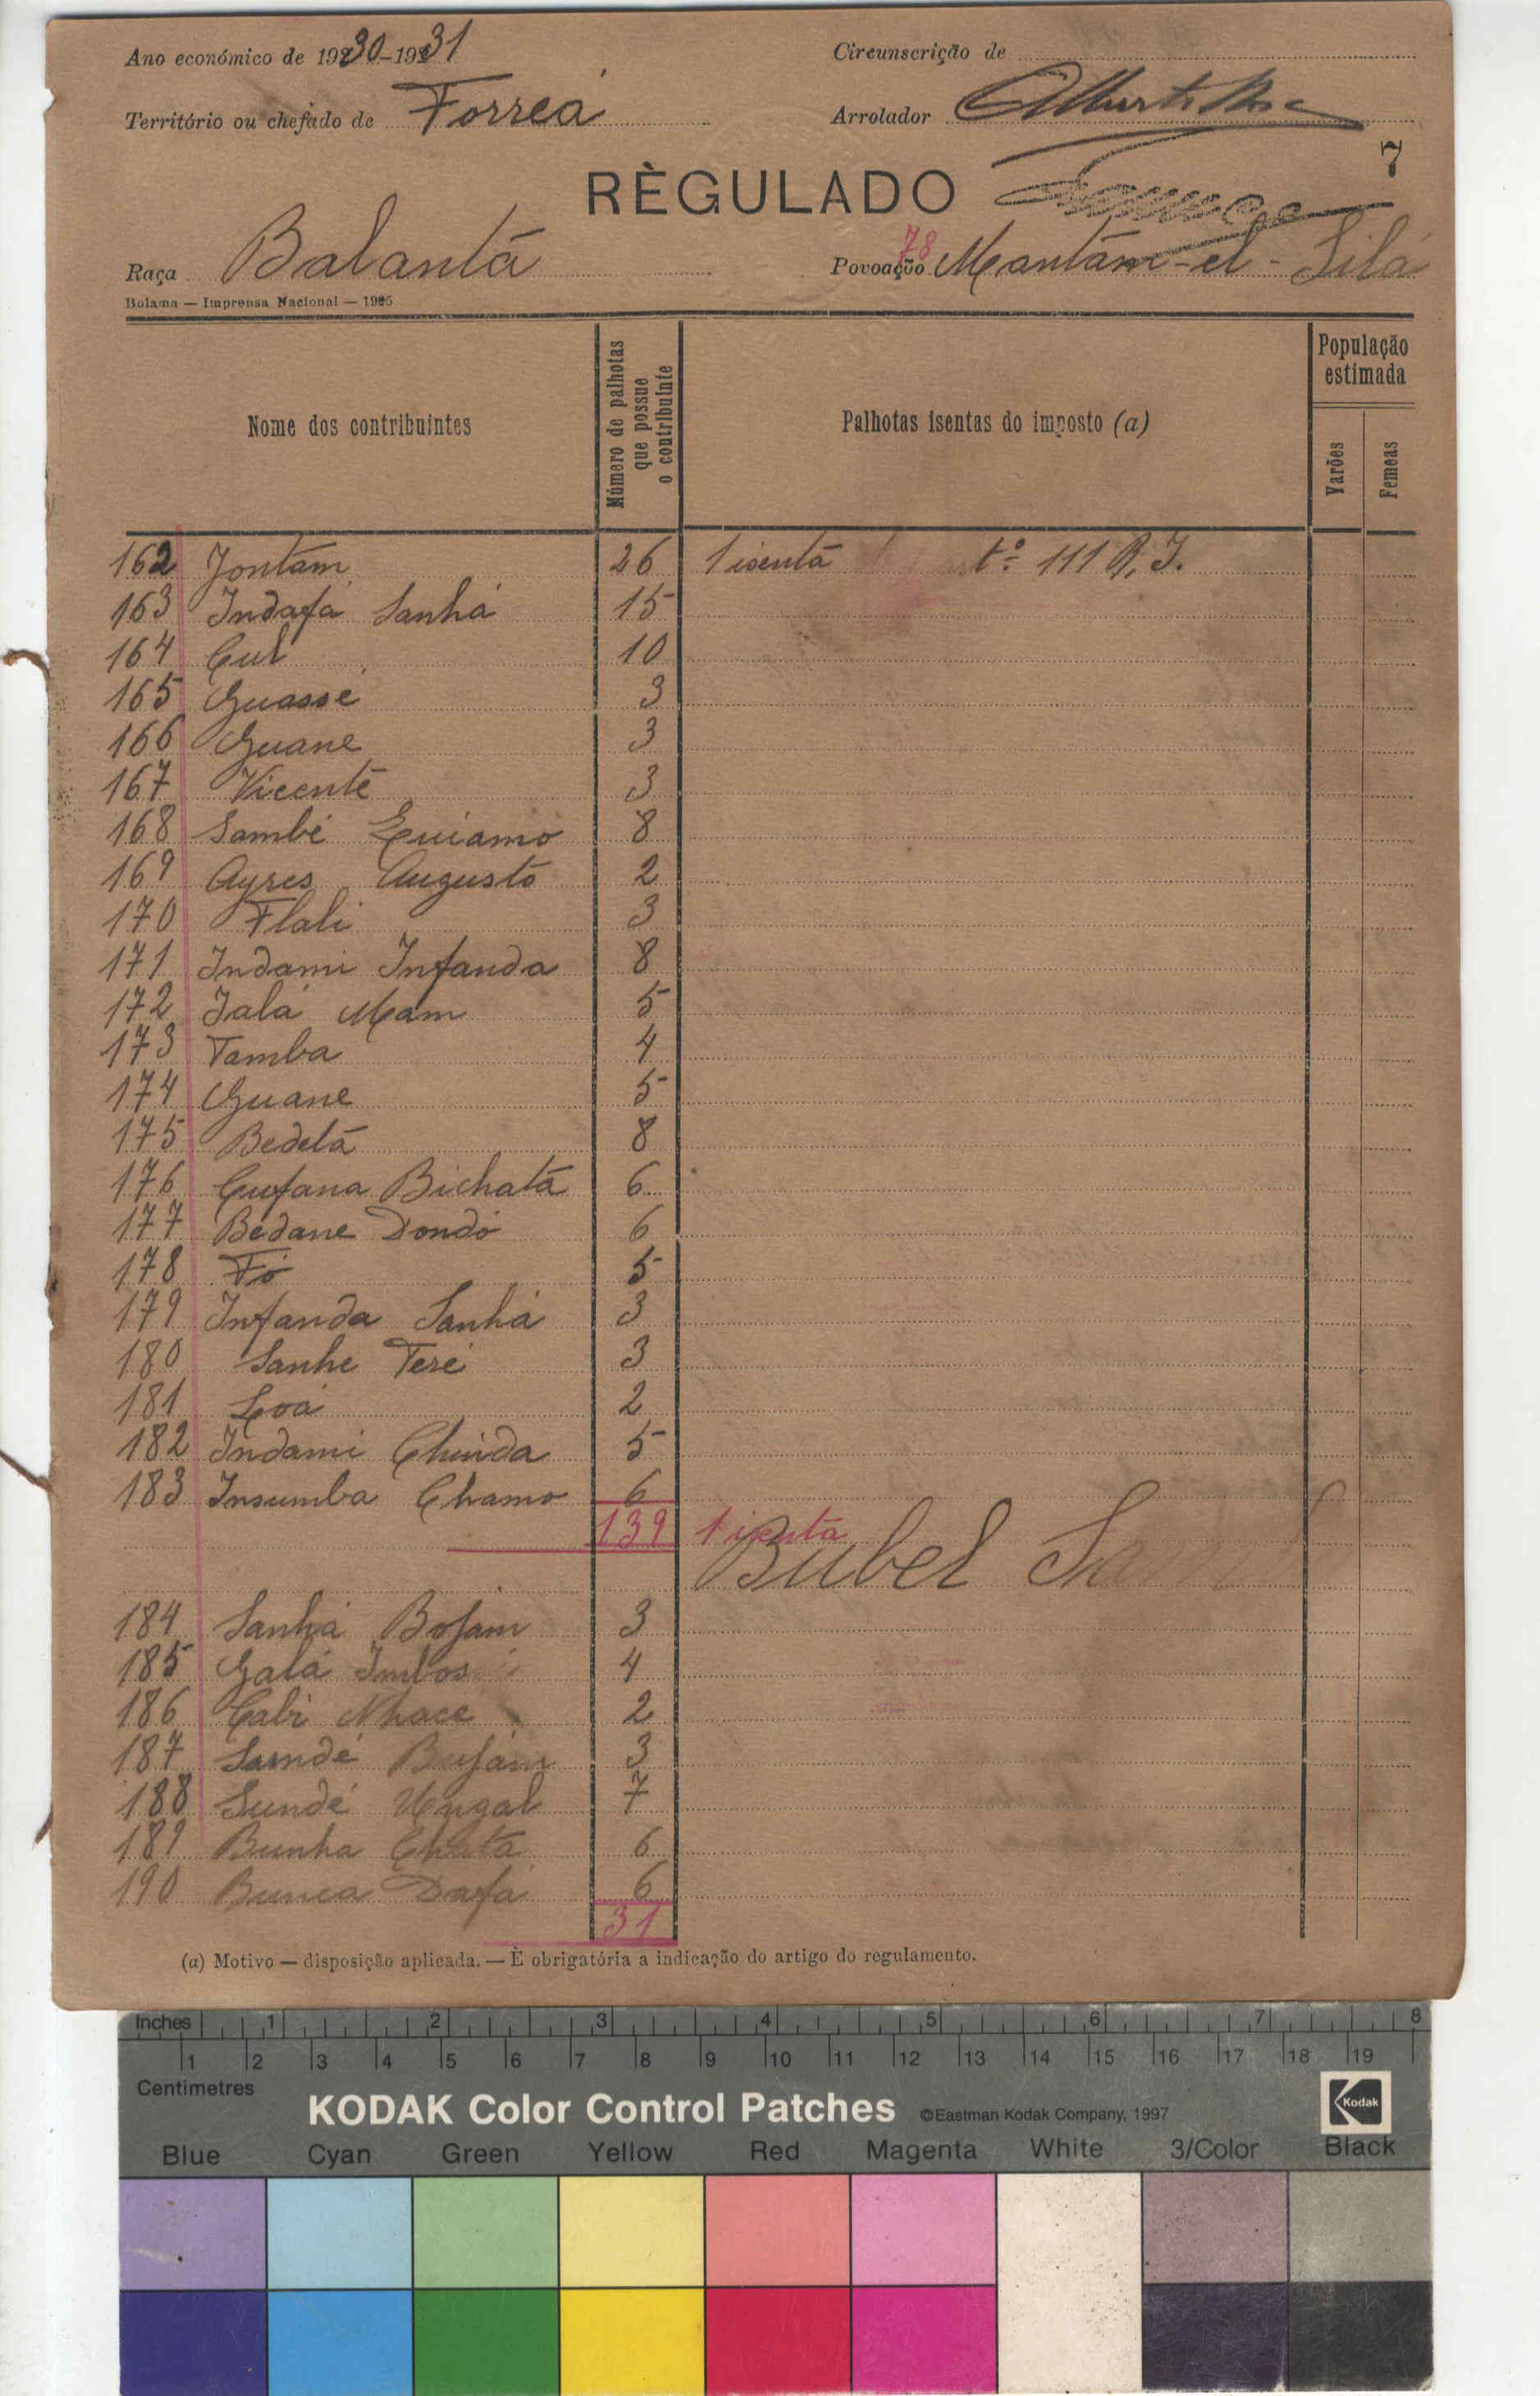 Ano económico de 1930-1931
Circunscrição de
Território ou chefado de Forreá
Arrolador
7
RÈGULADO
Raça Balanta
78
Povoação Mantam-el-Silá
Bolama — Imprensa Nacional — 1925
Nome dos contribuintes
Número de palhotas que possue o contribuinte
Palhotas isentas do imposto (a)
População estimada
Varões
Femeas
162 Jontam 26 1 isenta art.º 111 R. I.
163 Indafá Sanhá 15
164 Cul 10
165 Guassé 3
166 Guane 3
167 Vicente 3
168 Sambé Quiamo 8
169 Ayres Augusto 2
170 Flali 3
171 Indami Infanda 8
172 Jalá Mam 5
173 Tamba 4
174 Guane 5
175 Bedetá 8
176 Cufana Bichatá 6
177 Bedane Dondo 6
178 Fó 5
179 Infanda Sanhá 3
180 Sanhe Teré 3
181 Loá 2
182 Indami Chinda 5
183 Insumba Chamo 6
139 1 isenta
Bubel
184 Sanhá Bojam 3
185 Galá Imbos 4
186 Cabi Nhacé 2
187 Sundé Bujam 3
188 Sundé Ungal 7
189 Bunha Chata 6
190 Bunca Dafá 6
31
(a) Motivo — disposição aplicada. — È obrigatória a indicação do artigo do regulamento.
Inches 1 2 3 4 5 6 7 8
1 2 3 4 5 6 7 8 9 10 11 12 13 14 15 16 17 18 19
Centimetres
KODAK Color Control Patches ©Eastman Kodak Company, 1997 Kodak
Blue Cyan Green Yellow Red Magenta White 3/Color Black